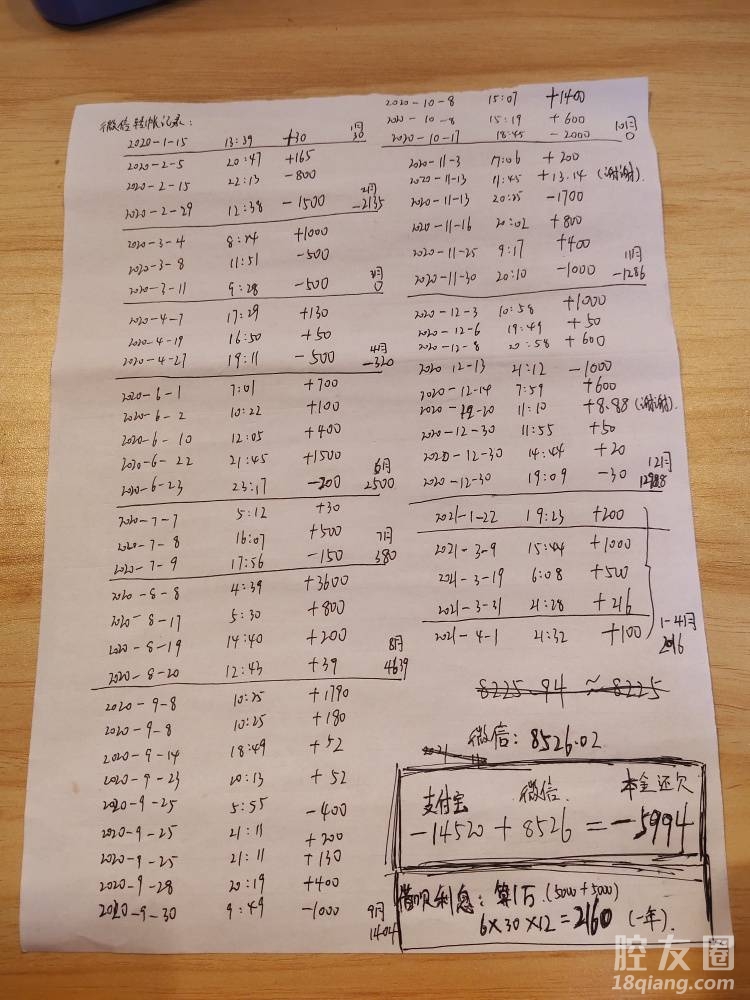 微信转帐记录:
2020-1-15 13:39 +30 1月 30
2020-2-5 20:47 +165
2020-2-15 22:13 -800
2020-2-29 12:38 -1500 2月 -2135
2020-3-4 8:24 +1000
2020-3-8 11:51 -500
2020-3-11 9:28 -500 3月 0
2020-4-7 17:29 +130
2020-4-19 16:50 +50
2020-4-27 19:11 -500 4月 -320
2020-6-1 7:01 +700
2020-6-2 10:22 +100
2020-6-10 12:05 +400
2020-6-22 21:45 +1500
2020-6-23 23:17 -200 6月 2500
2020-7-7 5:12 +30
2020-7-8 16:07 +500
2020-7-9 17:56 -150 7月 380
2020-8-8 4:39 +3600
2020-8-17 5:30 +800
2020-8-19 14:40 +200
2020-8-20 12:43 +39 8月 4639
2020-9-8 10:25 +1790
2020-9-8 10:25 +180
2020-9-14 18:49 +52
2020-9-23 20:13 +52
2020-9-25 5:55 -400
2020-9-25 21:11 +200
2020-9-25 21:11 +130
2020-9-28 20:19 +400
2020-9-30 9:49 -1000 9月 1404
2020-10-8 15:07 +1400
2020-10-8 15:19 +600
2020-10-17 18:45 -2000 10月 0
2020-11-3 17:06 +200
2020-11-13 11:45 +13.14 (谢谢).
2020-11-13 20:25 -1700
2020-11-16 20:02 +800
2020-11-25 9:17 +400
2020-11-30 20:10 -1000 11月 -1286
2020-12-3 10:58 +1000
2020-12-6 19:49 +50
2020-12-8 20:58 +600
2020 12-13 21:12 -1000
2020-12-14 7:59 +600
2020-12-20 11:10 +8.88 (谢谢).
2020-12-30 11:55 +50
2020-12-30 14:44 +20
2020-12-30 19:09 -30 12月
2021-1-22 19:23 +200
2021-3-9 15:44 +1000
2021-3-19 6:08 +500
2021-3-31 21:28 +216
2021-4-1 21:32 +100 1-4月 2016
8225.94 ≈8225
微信: 8526.02
支付宝 微信 本金还欠
-14520 + 8526 = -5994
借呗利息: 算1万 (5000+5000)
6×30×12=2160 (一年).
腔友圈
18qiang.com